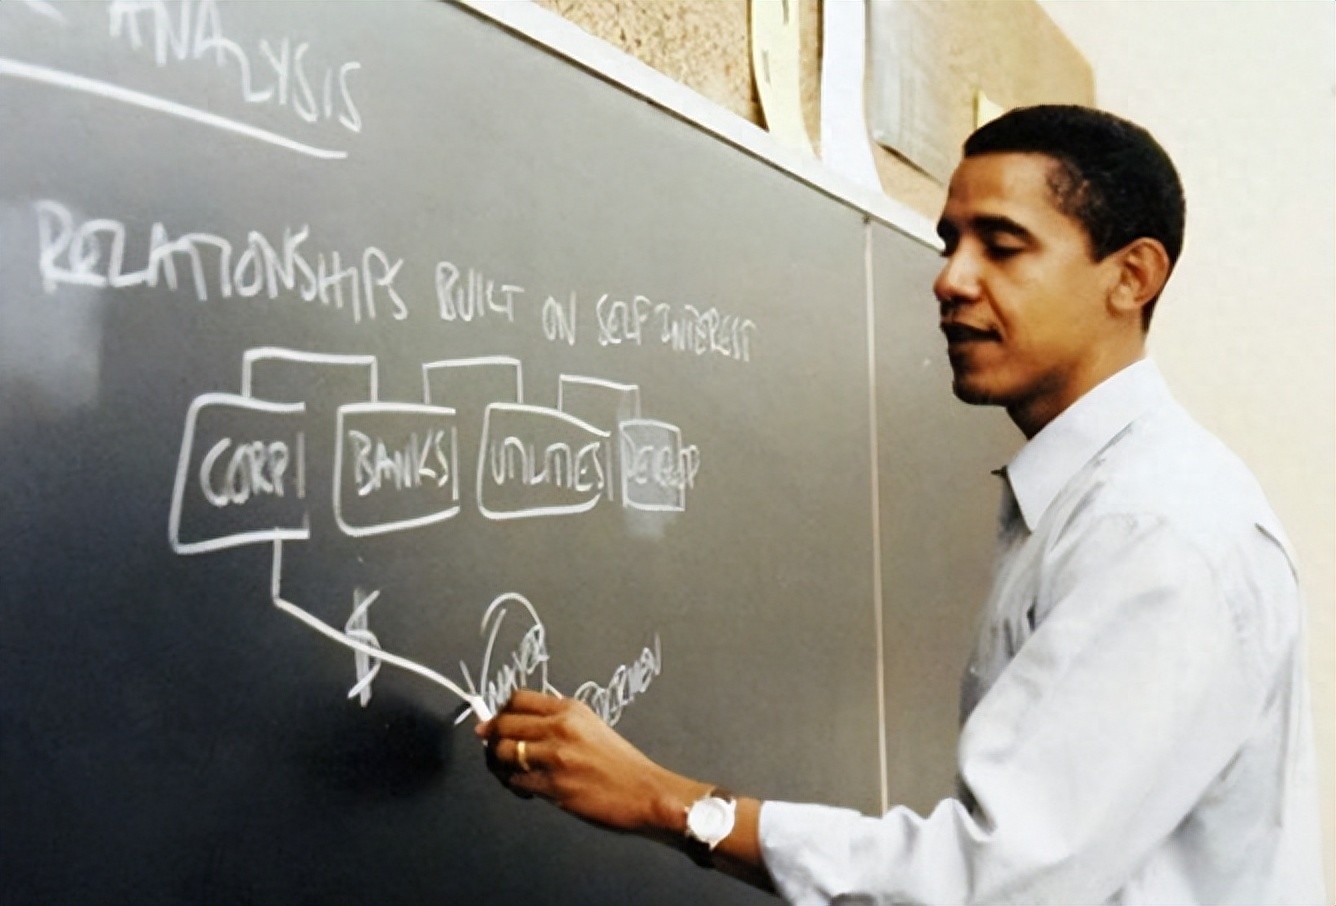 ANALYSIS
RELATIONSHIPS BUILT ON SELF INTEREST
CORP BANKS UTILITIES
$
MAYOR